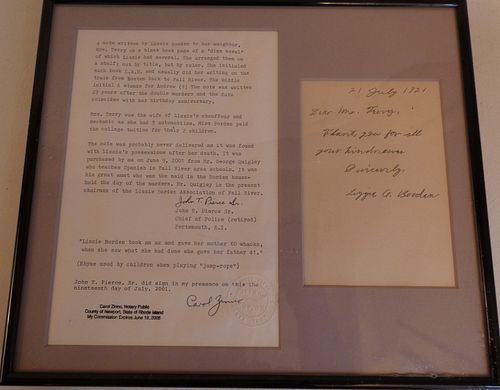 A note written by Lizzie Borden to her neighbor,
Mrs. Terry on a blank book page of a "dime novel"
of which Lizzie had several. She arranged them on
a shelf; not by title, but by color. She initialed
each book L.A.B. and usually did her writing on the
train from Boston back to Fall River. The middle
initial A stands for Andrew (?) The note was written
29 years after the double murders and the date
coincides with her birthday anniversary.
Mrs. Terry was the wife of Lizzie's chauffeur and
mechanic as she had 3 automobiles. Miss Borden paid
the college tuition for their 2 children.
The note was probably never delivered as it was found
with Lizzie's possessions after her death. It was
purchased by me on June 9, 2001 from Mr. George Quigley
who teaches Spanish in Fall River area schools. It was
his great aunt who was the maid in the Borden house-
hold the day of the murders. Mr. Quigley is the present
chairman of the Lizzie Borden Association of Fall River.
John T. Pierce Sr.
John T. Pierce Sr.
Chief of Police (retired)
Portsmouth, R.I.
"Lizzie Borden took an ax and gave her mother 40 whacks,
when she saw what she had done she gave her father 41."
(Rhyme used by children when playing "jump-rope")
John T. Pierce, Sr. did sign in my presence on this the
nineteenth day of July, 2001.
Carol Zinno
Carol Zinno, Notary Public
County of Newport, State of Rhode Island
My Commission Expires June 19, 2005
21 July 1921
Dear Mrs. Terry,
Thank you for all
your kindnesses
Sincerely,
Lizzie A. Borden